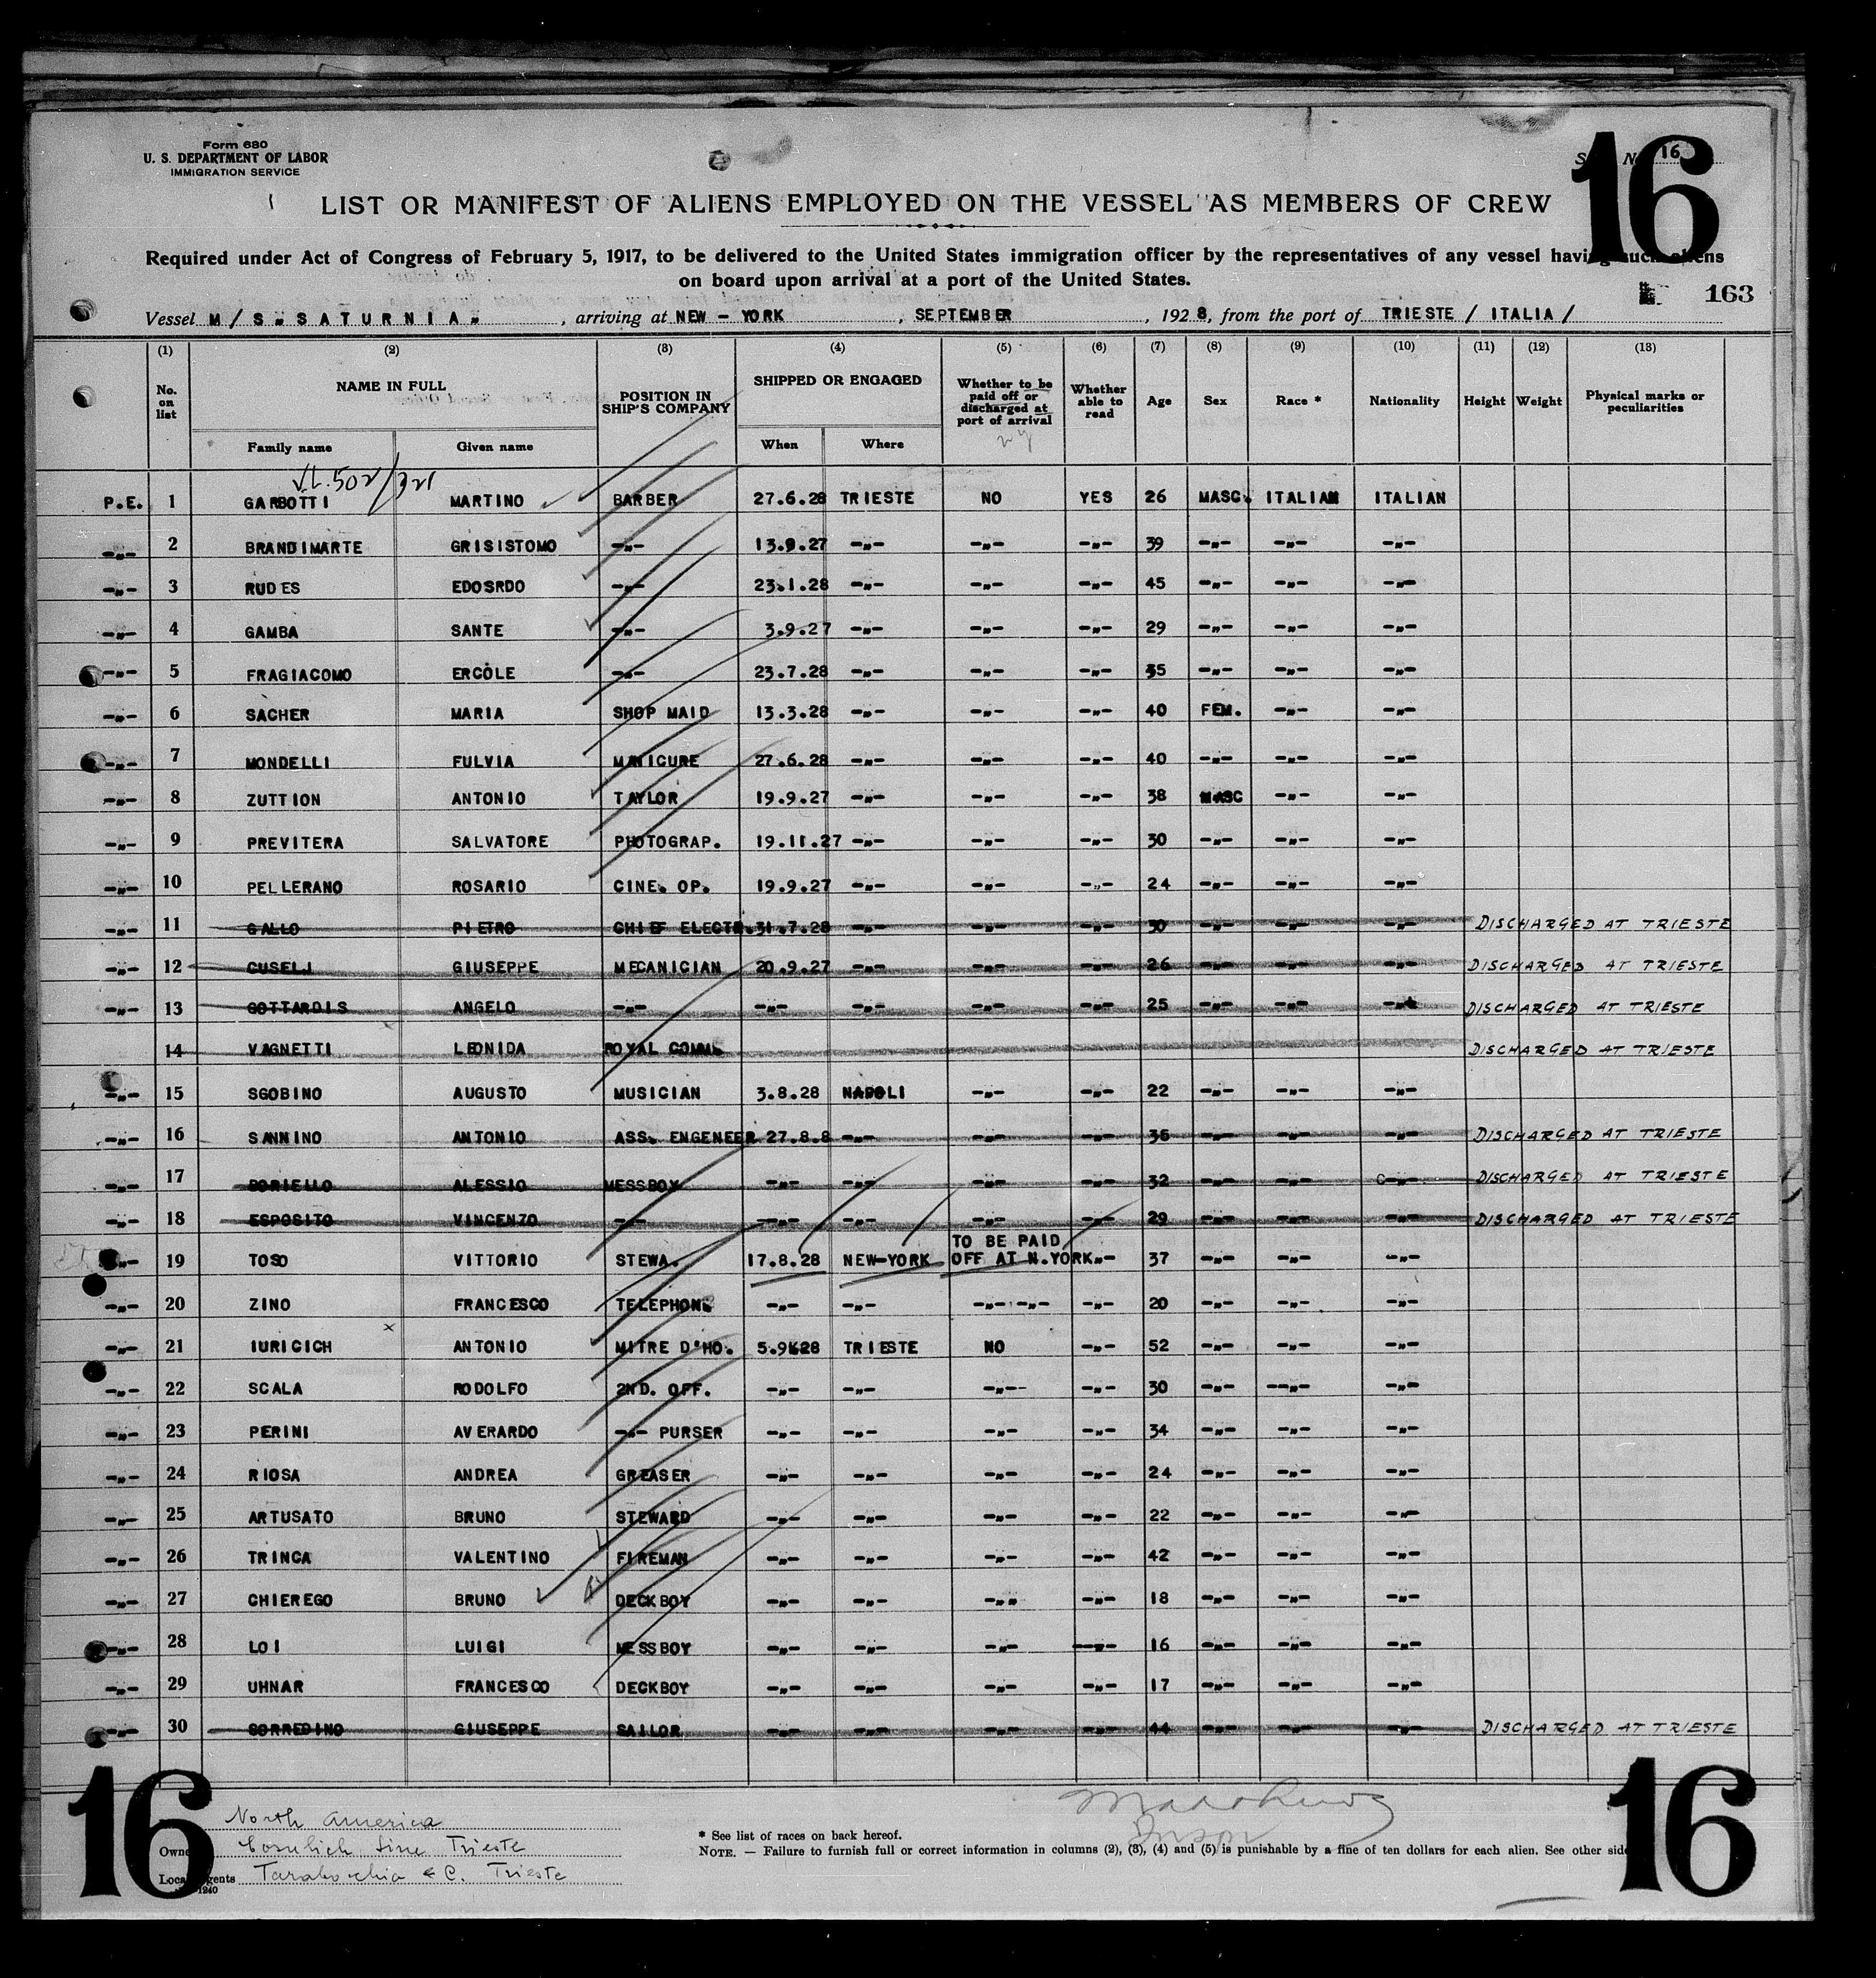 Form 680
U. S. DEPARTMENT OF LABOR
IMMIGRATION SERVICE
16
16
LIST OR MANIFEST OF ALIENS EMPLOYED ON THE VESSEL AS MEMBERS OF CREW
Required under Act of Congress of February 5, 1917, to be delivered to the United States immigration officer by the representatives of any vessel having such aliens
on board upon arrival at a port of the United States.
163
Vessel M/S "SATURNIA", arriving at NEW-YORK, SEPTEMBER, 1928, from the port of TRIESTE / ITALIA /
(1) (2) (3) (4) (5) (6) (7) (8) (9) (10) (11) (12) (13)
No. on list NAME IN FULL POSITION IN SHIP'S COMPANY SHIPPED OR ENGAGED Whether to be paid off or discharged at port of arrival Whether able to read Age Sex Race * Nationality Height Weight Physical marks or peculiarities
Family name Given name When Where
P.E. 1 GARBOTTI MARTINO BARBER 27.6.28 TRIESTE NO YES 26 MASC. ITALIAN ITALIAN
-"- 2 BRANDIMARTE GRISISTOMO -"- 13.9.27 -"- -"- -"- 39 -"- -"- -"-
-"- 3 RUDES EDOSRDO -"- 23.1.28 -"- -"- -"- 45 -"- -"- -"-
-"- 4 GAMBA SANTE -"- 3.9.27 -"- -"- -"- 29 -"- -"- -"-
-"- 5 FRAGIACOMO ERCOLE -"- 23.7.28 -"- -"- -"- 35 -"- -"- -"-
-"- 6 SACHER MARIA SHOP MAID 13.3.28 -"- -"- -"- 40 FEM. -"- -"-
-"- 7 MONDELLI FULVIA MANICURE 27.6.28 -"- -"- -"- 40 -"- -"- -"-
-"- 8 ZUTTION ANTONIO TAYLOR 19.9.27 -"- -"- -"- 38 MASC -"- -"-
-"- 9 PREVITERA SALVATORE PHOTOGRAP. 19.11.27 -"- -"- -"- 30 -"- -"- -"-
-"- 10 PELLERANO ROSARIO CINE. OP. 19.9.27 -"- -"- -"- 24 -"- -"- -"-
-"- 11 GALLO PIETRO CHIEF ELECTR. 31.7.28 -"- -"- -"- 30 -"- -"- -"- DISCHARGED AT TRIESTE
-"- 12 CUSELI GIUSEPPE MECANICIAN 20.9.27 -"- -"- -"- 26 -"- -"- -"- DISCHARGED AT TRIESTE
-"- 13 GOTTARDIS ANGELO -"- -"- -"- -"- -"- 25 -"- -"- -"- DISCHARGED AT TRIESTE
14 VAGNETTI LEONIDA ROYAL COMM. DISCHARGED AT TRIESTE
-"- 15 SGOBINO AUGUSTO MUSICIAN 3.8.28 NAPOLI -"- -"- 22 -"- -"- -"-
-"- 16 SANNINO ANTONIO ASS. ENGENEER 27.8.8 -"- -"- -"- 36 -"- -"- -"- DISCHARGED AT TRIESTE
-"- 17 ALESSIO MESSBOY -"- -"- -"- -"- 32 -"- -"- -"- DISCHARGED AT TRIESTE
-"- 18 ESPOSITO VINCENZO -"- -"- -"- -"- -"- 29 -"- -"- -"- DISCHARGED AT TRIESTE
19 TOSO VITTORIO STEWA. 17.8.28 NEW-YORK TO BE PAID OFF AT N.YORK -"- 37 -"- -"- -"-
-"- 20 ZINO FRANCESCO TELEPHON. -"- -"- -"- -"- -"- 20 -"- -"- -"-
-"- 21 IURICICH ANTONIO MITRE D'HO. 5.9.28 TRIESTE NO -"- 52 -"- -"- -"-
-"- 22 SCALA RODOLFO 2ND. OFF. -"- -"- -"- -"- 30 -"- -"- -"-
-"- 23 PERINI AVERARDO -"- PURSER -"- -"- -"- -"- 34 -"- -"- -"-
-"- 24 RIOSA ANDREA GREASER -"- -"- -"- -"- 24 -"- -"- -"-
-"- 25 ARTUSATO BRUNO STEWARD -"- -"- -"- -"- 22 -"- -"- -"-
-"- 26 TRINCA VALENTINO FIREMAN -"- -"- -"- -"- 42 -"- -"- -"-
-"- 27 CHIEREGO BRUNO DECKBOY -"- -"- -"- -"- 18 -"- -"- -"-
-"- 28 LOI LUIGI MESSBOY -"- -"- -"- -"- 16 -"- -"- -"-
-"- 29 UHNAR FRANCESCO DECKBOY -"- -"- -"- -"- 17 -"- -"- -"-
-"- 30 GORREDINO GIUSEPPE SAILOR -"- -"- -"- -"- 44 -"- -"- -"- DISCHARGED AT TRIESTE
16
16
North America
Owners Cosulich Line Trieste
Local Agents Tarabochia & C. Trieste
1240
* See list of races on back hereof.
NOTE. — Failure to furnish full or correct information in columns (2), (3), (4) and (5) is punishable by a fine of ten dollars for each alien. See other side